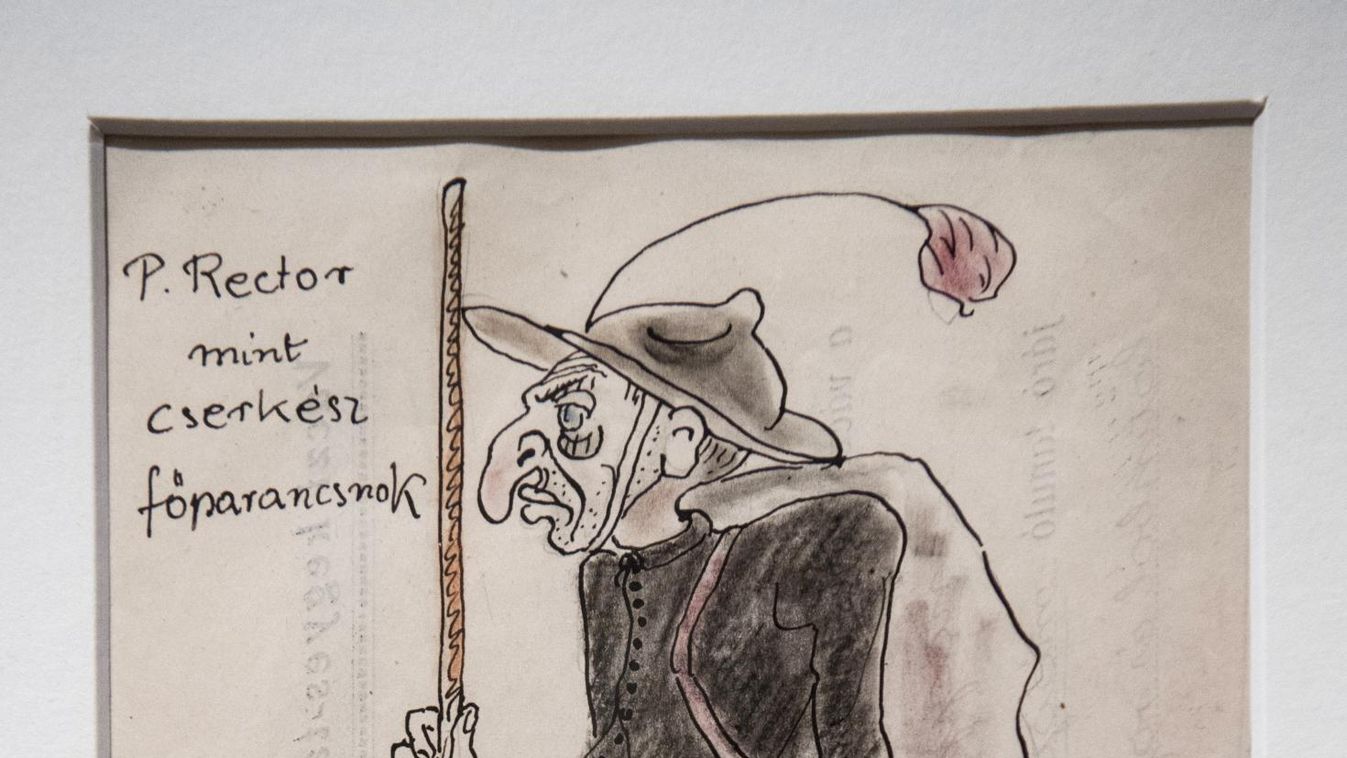 P. Rector
mint
cserkész
főparancsnok